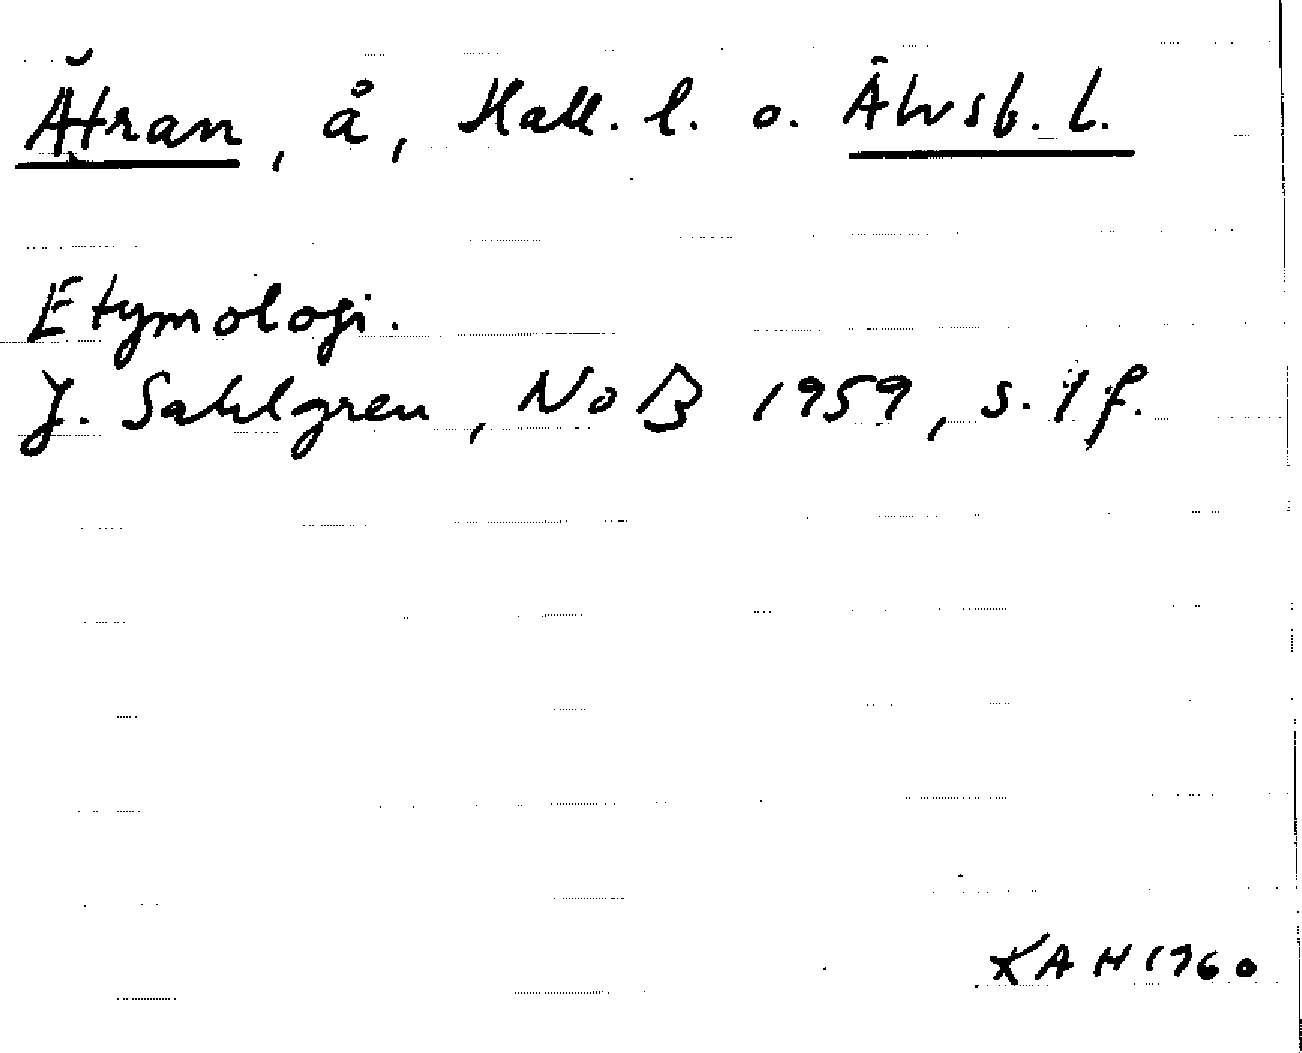 Ätran, å, Hall. l. o. Älvsb. l.
Etymologi.
J. Sahlgren, NoB 1959, s. 1 f.
KAH 1960